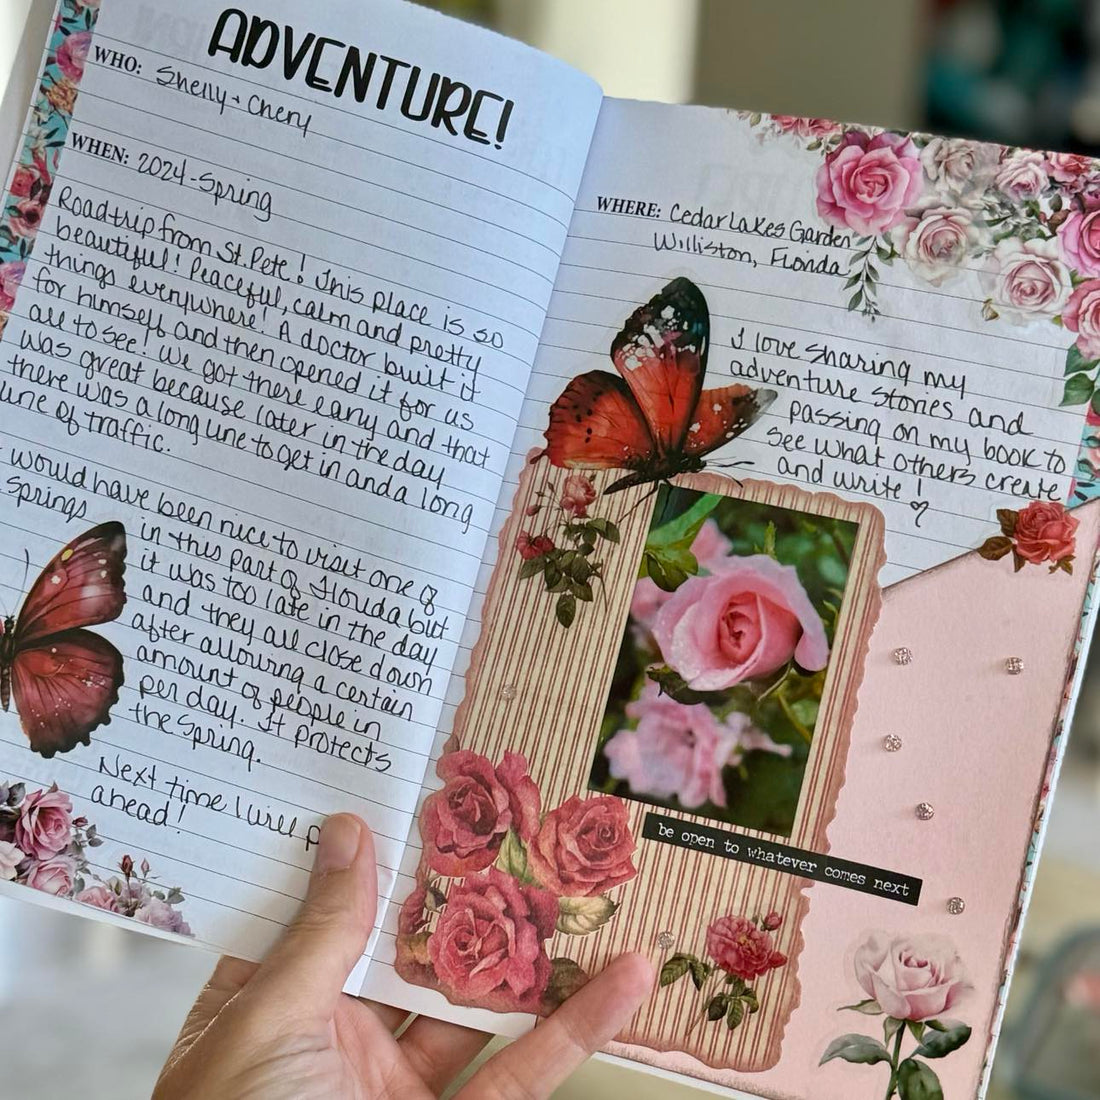 ADVENTURE!
WHO: Shelly + Cheryl
WHEN: 2024 - Spring
Roadtrip from St. Pete! This place is so
beautiful! Peaceful, calm and pretty
things everywhere! A doctor built it
for himself and then opened it for us
all to see! We got there early and that
was great because later in the day
there was a long line to get in and a long
line of traffic.
would have been nice to visit one of
springs in this part of Florida but
it was too late in the day
and they all close down
after allowing a certain
amount of people in
per day. It protects
the spring.
Next time I will p
ahead!
WHERE: Cedar Lakes Garden
Williston, Florida
I love sharing my
adventure stories and
passing on my book to
see what others create
and write! ♡
be open to whatever comes next